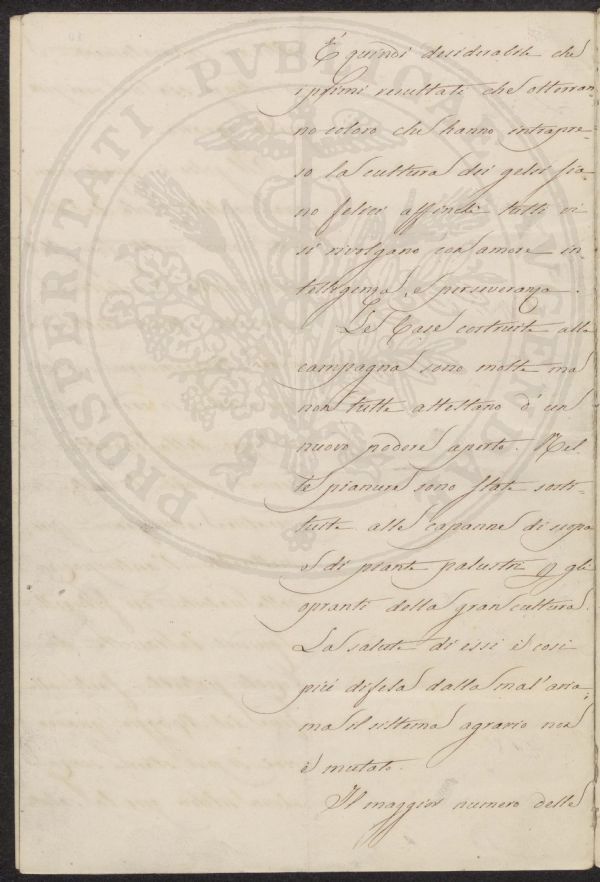 È quindi desiderabile che
i primi resultati che otterran-
no coloro che hanno intrapre-
so la cultura dei gelsi sia-
no felici affinchè tutti vi
si rivolgano con amore in-
telligenza, e perseveranza.
Le Case costruite alla
campagna sono molte ma
non tutte attestano d'un
nuovo podere aperto. Nel-
le pianure sono state sosti-
tuite alle capanne di scopa
e di piante palustri p gli
opranti della gran cultura.
La salute di essi è così
più difesa dalla mal'aria,
ma il sistema agrario non
è mutato.
Il maggior numero delle
PROSPERITATI PVBLICAE AVGENDAE